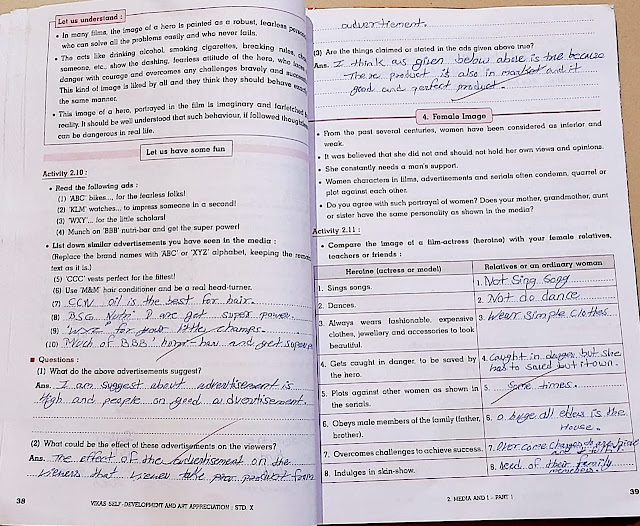 Let us understand :
• In many films, the image of a hero is painted as a robust, fearless
who can solve all the problems easily and who never fails.
• The acts like drinking alcohol, smoking cigarettes, breaking rules,
someone, etc., show the dashing, fearless attitude of the hero, who
danger with courage and overcomes any challenges bravely and
This kind of image is liked by all and they think they should behave
the same manner.
• This image of a hero, portrayed in the film is imaginary and
reality. It should be well understood that such behaviour, if followed
can be dangerous in real life.
Let us have some fun
Activity 2.10 :
• Read the following ads :
(1) 'ABC' bikes..., for the fearless folks!
(2) 'KLM' watches... to impress someone in a second!
(3) 'WXY'... for the little scholars!
(4) Munch on 'BBB' nutri-bar and get the super power!
• List down similar advertisements you have seen in the media :
(Replace the brand names with 'ABC' or 'XYZ' alphabet, keeping the
text as it is.)
(5) 'CCC' vests perfect for the fittest!
(6) Use 'M&M' hair conditioner and be a real head-turner.
(7) CCN oil is the best for hair.
(8) BSG Nutri get super power
(9) for your little champs.
(10) Much of BBB' and get
■ Questions :
(1) What do the above advertisements suggest?
Ans. I am suggest about advertisement is
High and people on good advertisement.
(2) What could be the effect of these advertisements on the viewers?
Ans. The effect of the advertisement on the
that take product from
38
VIKAS SELF-DEVELOPMENT AND ART APPRECIATION : STD. X
advertiement.
(3) Are the things claimed or stated in the ads given above true?
Ans. I think as given below above is true because
There product is also in market and it
good and perfect product.
4. Female Image
• From the past several centuries, women have been considered as inferior and
weak.
• It was believed that she did not and should not hold her own views and opinions.
• She constantly needs a man's support.
• Women characters in films, advertisements and serials often condemn, quarrel or
plot against each other.
• Do you agree with such portrayal of women? Does your mother, grandmother, aunt
or sister have the same personality as shown in the media?
Activity 2.11 :
• Compare the image of a film-actress (heroine) with your female relatives,
teachers or friends :
Heroine (actress or model) Relatives or an ordinary woman
1. Sings songs. 1. Not Sing Song
2. Dances. 2. Not do dance
3. Always wears fashionable, expensive 3. Wear Simple clothes
clothes, jewellery and accessories to look
beautiful.
4. Gets caught in danger, to be saved by 4. caught in danger but she
the hero. has to saved but itown.
5. Plots against other women as shown in 5. Some times.
the serials.
6. Obeys all male members of the family (father, 6. all elders is the
brother). House.
7. Overcomes challenges to achieve success. 7. Over come
8. Indulges in skin-show. 8. of their family
members.
2. MEDIA AND I – PART 1
39